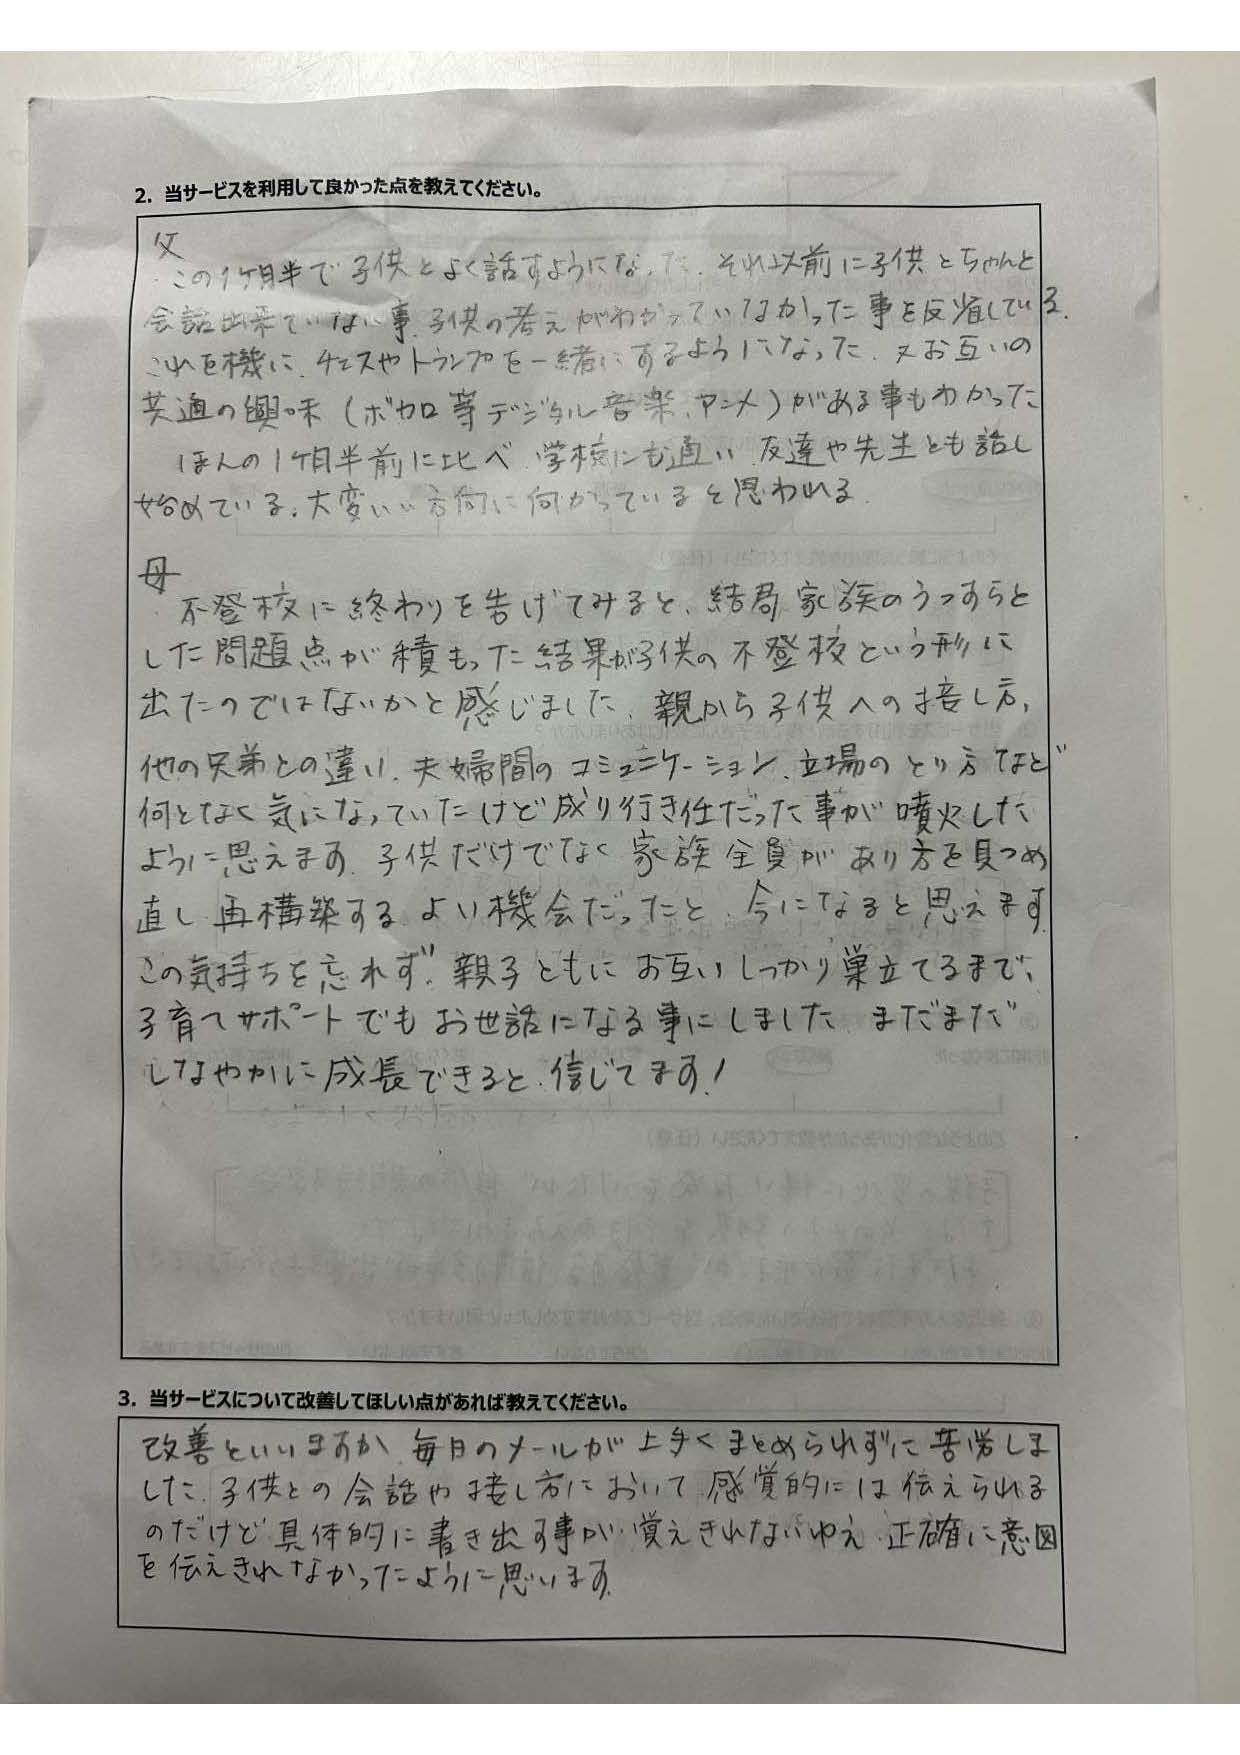 2. 当サービスを利用して良かった点を教えてください。
父
・この1ヶ月半で子供とよく話すようになった。それ以前に子供とちゃんと
会話出来ていない事、子供の考えがわかっていなかった事を反省している。
これを機に、チェスやトランプを一緒にするようになった。又お互いの
共通の興味(ボカロ等デジタル音楽、アニメ)がある事もわかった
ほんの1ヶ月半前に比べ、学校にも通い、友達や先生とも話し
始めている。大変いい方向に向かっていると思われる。
母
・不登校に終わりを告げてみると、結局、家族のうっすらと
した問題点が積もった結果が子供の不登校という形に
出たのではないかと感じました。親から子供への接し方、
他の兄弟との違い、夫婦間のコミュニケーション、立場のとり方など
何となく気になっていたけど成り行き任だった事が噴火した
ように思えます。子供だけでなく家族全員があり方を見つめ
直し、再構築するよい機会だったと、今になると思えます。
この気持ちを忘れず、親子ともにお互いしっかり巣立てるまで、
子育てサポートでもお世話になる事にしました。まだまだ
しなやかに成長できると、信じてます!
3. 当サービスについて改善してほしい点があれば教えてください。
改善といいますか、毎日のメールが上手くまとめられずに苦労しま
した。子供との会話や接し方において、感覚的には伝えられる
のだけど具体的に書き出す事が、覚えきれないゆえ、正確に意図
を伝えきれなかったように思います。